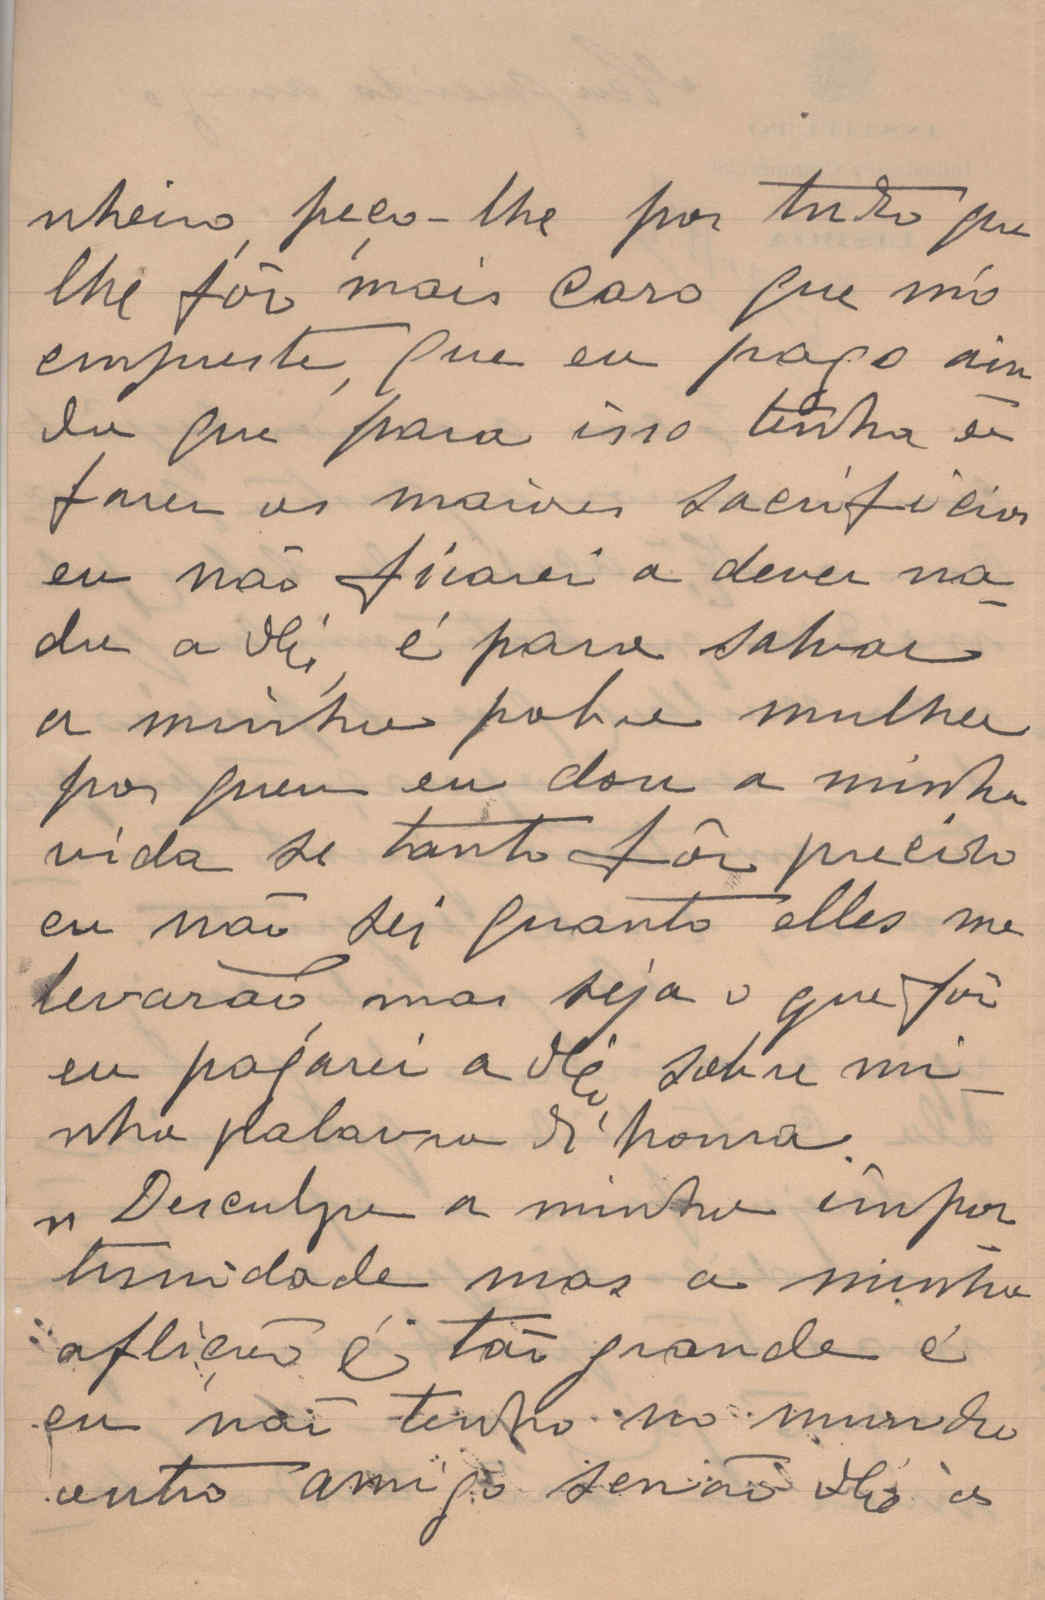 nheiro, peço-lhe por tudo que
lhe fôr mais caro que m'o
empreste, que eu pago ain
da que para isso tenha de
fazer os maiores sacrificios
eu não ficarei a dever na-
da a V. é para salvar
a minha pobre mulher
por quem eu dou a minha
vida se tanto fôr preciso
eu não sei quanto elles me
levarão, mas seja o que fôr
eu pagarei a V. sobre mi-
nha palavra d'honra.
" Desculpe a minha impor
tunidade mas a minha
aflição é tão grande e
eu não tenho no mundo
outro amigo senão V. os